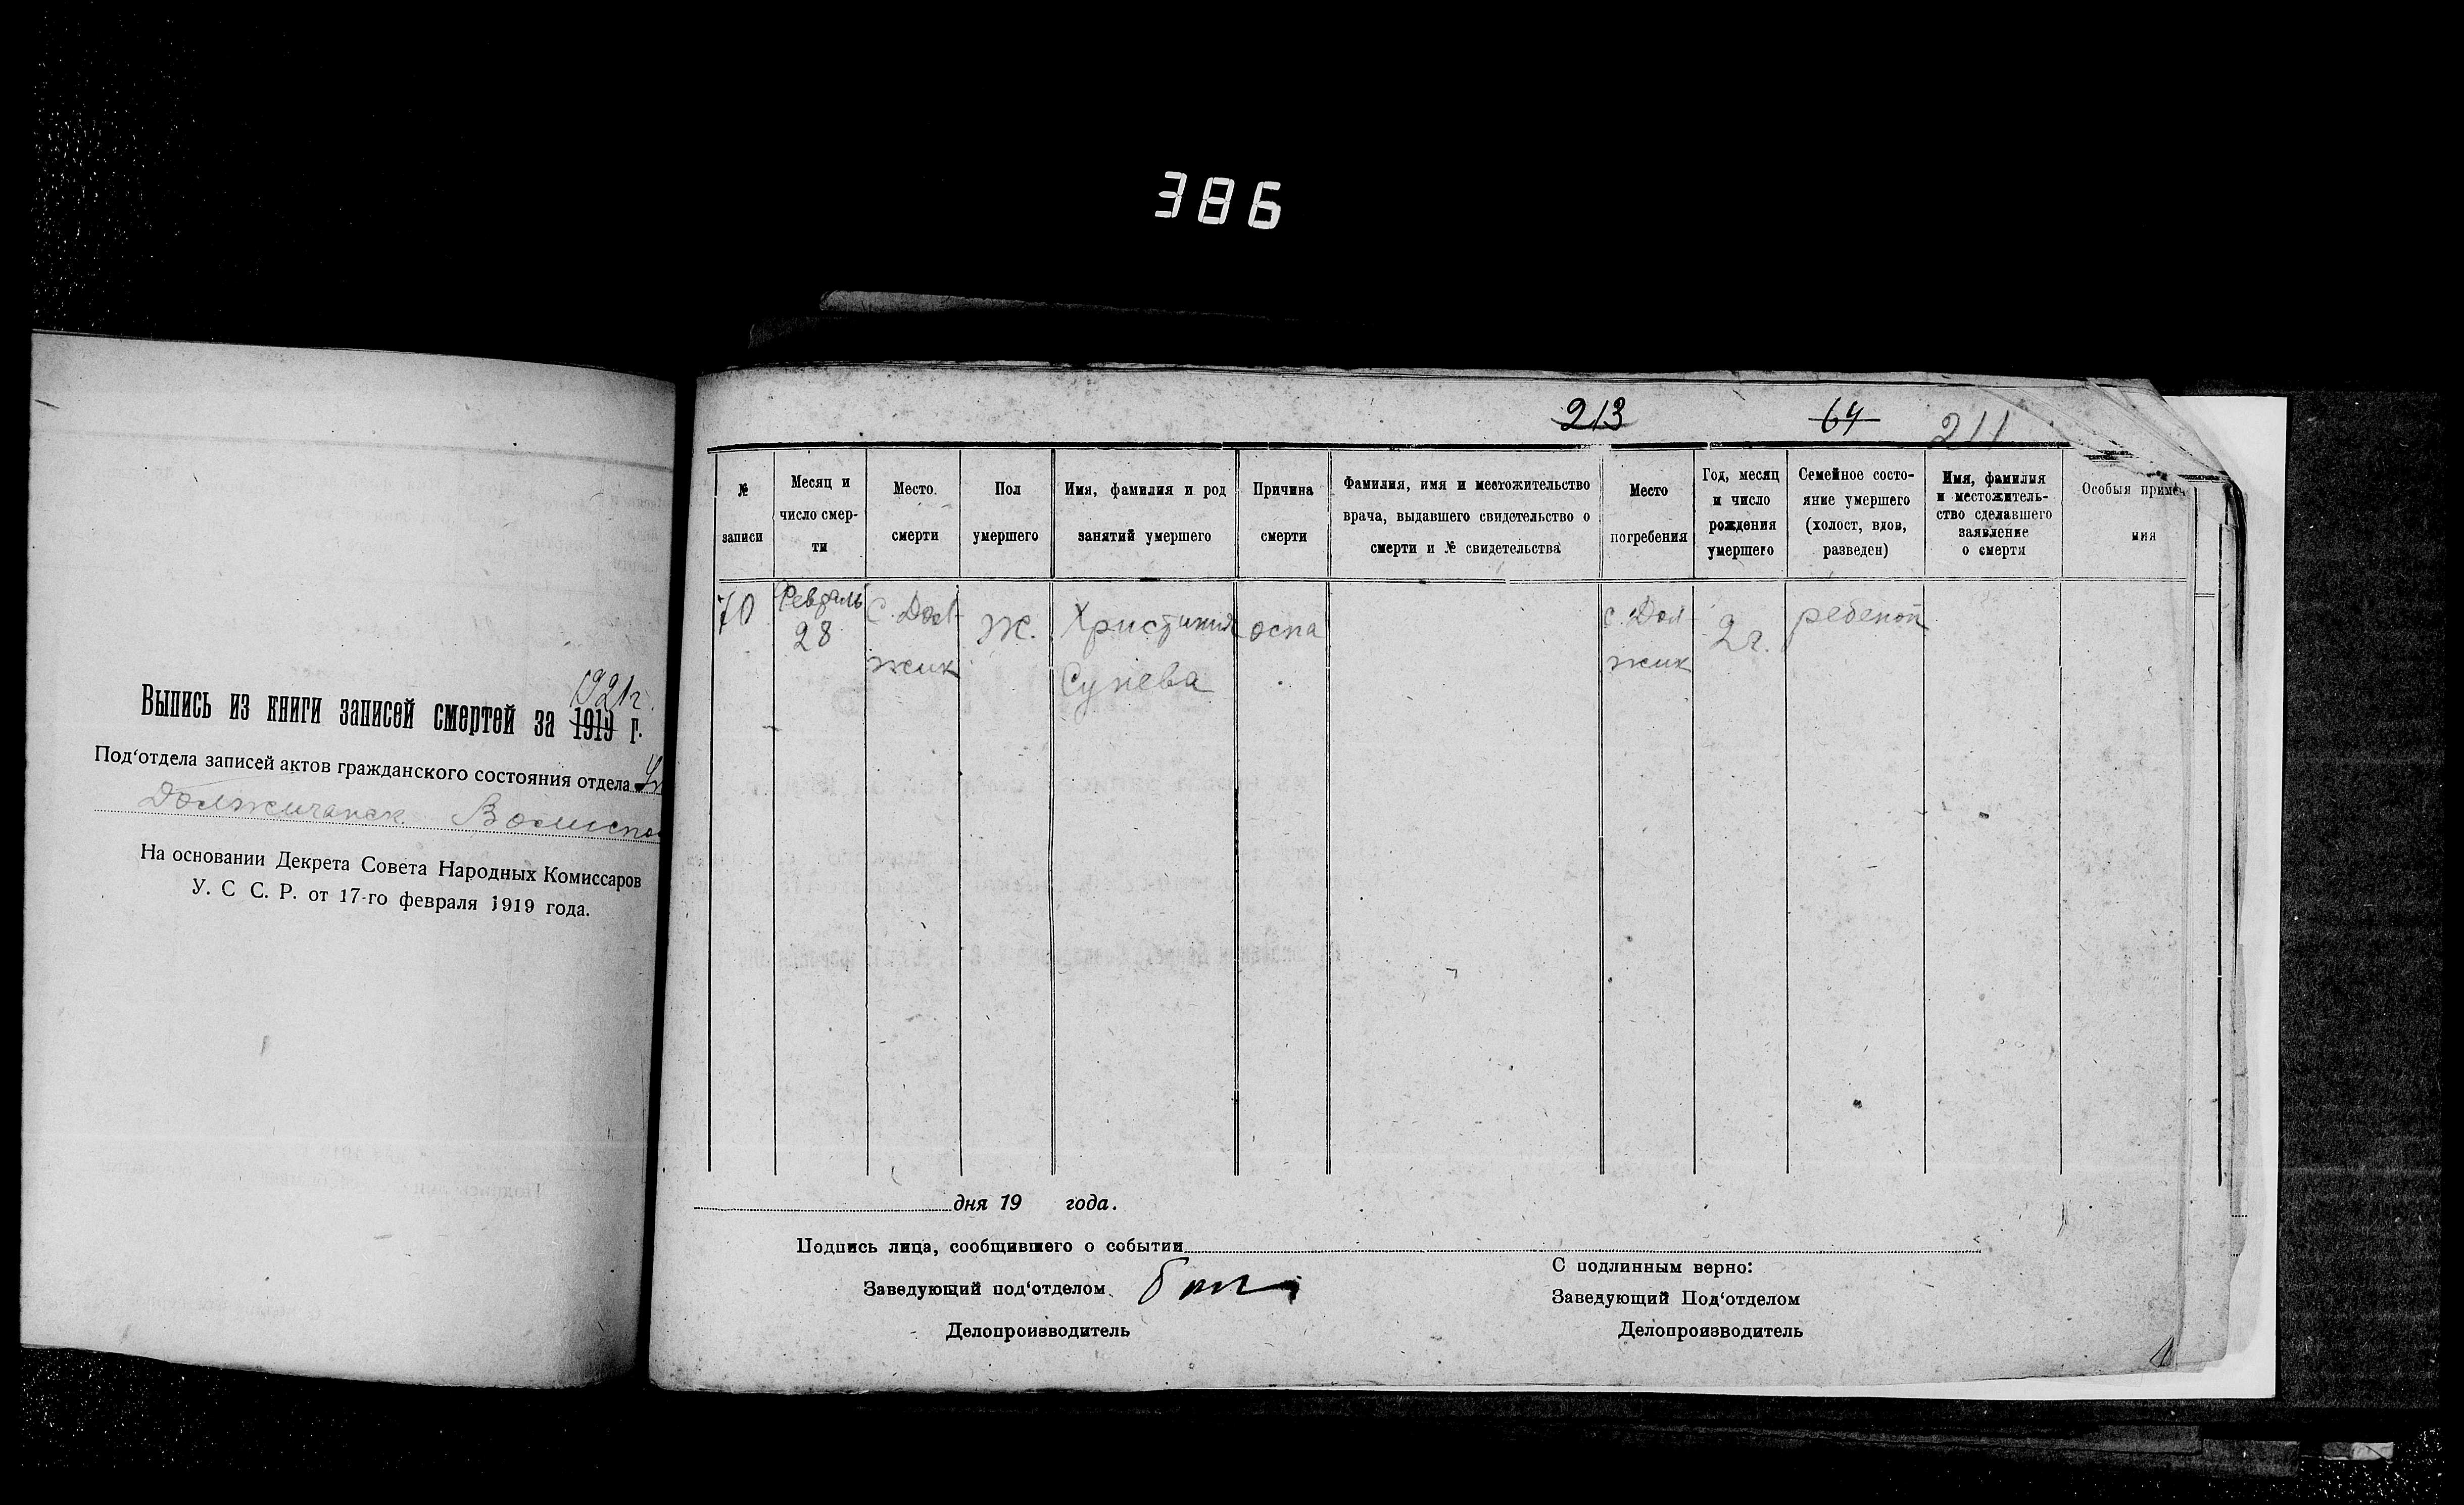 386
1921г.
Выпись из книги записей смертей за 1919 г.
Под‘отдела записей актов гражданского состояния отдела
Должичанск.
На основании Декрета Совета Народных Комиссаров
У. С С. Р. от 17-го февраля 1919 года.
213 64 211
№ записи
Месяц и число смер-ти
Место. смерти
Пол умершего
Имя, фамилия и род занятий умершего
Причина смерти
Фамилия, имя и местожительство врача, выдавшего свидетельство о смерти и № свидетельства
Место погребения
Год, месяц и число рождения умершего
Семейное состо-яние умершего (холост, вдов, разведен)
Имя, фамилия и местожитель-ство сделавшего заявление о смерти
Особыя примеч мия
70
Февраль
28
С. Дол-
жик
Ж.
Христиния
Сунева
оспа
с. Дол-
жик
2г.
ребенок
дня 19 года.
Подпись лица, сообщившего о событии
Заведующий под‘отделом
Делопроизводитель
С подлинным верно:
Заведующий Под‘отделом
Делопроизводитель